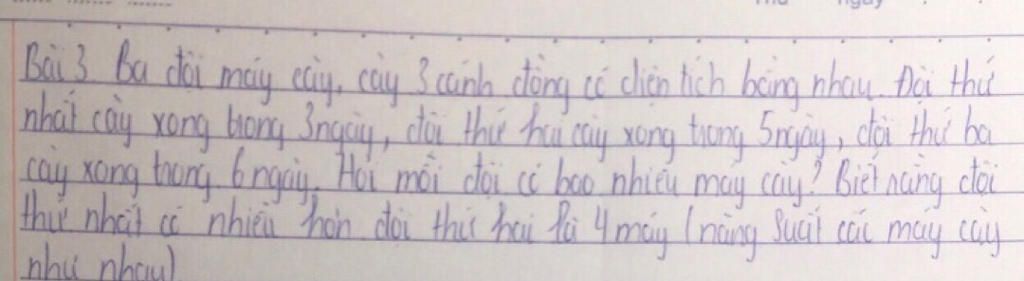 Thứ ngày
Bài 3 Ba đội máy cày, cày 3 cánh đồng có diện tích bằng nhau. Đội thứ
nhất cày xong trong 3 ngày, đội thứ hai cày xong trong 5 ngày, đội thứ ba
cày xong trong 6 ngày. Hỏi mỗi đội có bao nhiêu máy cày? Biết rằng đội
thứ nhất có nhiều hơn đội thứ hai là 4 máy (năng suất các máy cày
như nhau)